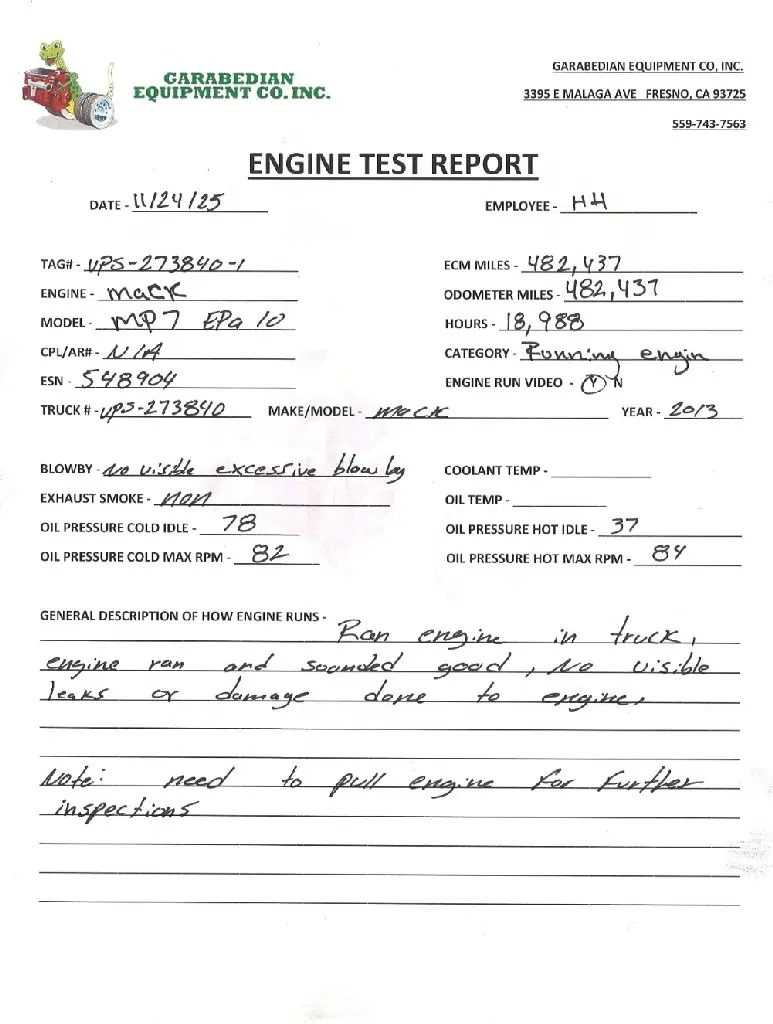 GARABEDIAN
EQUIPMENT CO. INC.
GARABEDIAN EQUIPMENT CO, INC.
3395 E MALAGA AVE FRESNO, CA 93725
559-743-7563
ENGINE TEST REPORT
DATE - 11/24/25 EMPLOYEE - HH
TAG# - UPS-273840-1 ECM MILES - 482,437
ENGINE - MACK ODOMETER MILES - 482,437
MODEL - MP7 EPA 10 HOURS - 18,988
CPL/AR# - N/A CATEGORY - Running engin
ESN - 548904 ENGINE RUN VIDEO - Y N
TRUCK # - UPS-273840 MAKE/MODEL - MACK YEAR - 2013
BLOWBY - No visible excessive blow by COOLANT TEMP -
EXHAUST SMOKE - non OIL TEMP -
OIL PRESSURE COLD IDLE - 78 OIL PRESSURE HOT IDLE - 37
OIL PRESSURE COLD MAX RPM - 82 OIL PRESSURE HOT MAX RPM - 84
GENERAL DESCRIPTION OF HOW ENGINE RUNS - Ran engine in truck,
engine ran and sounded good, No visible
leaks or damage done to engine.
Note: need to pull engine for further
inspections